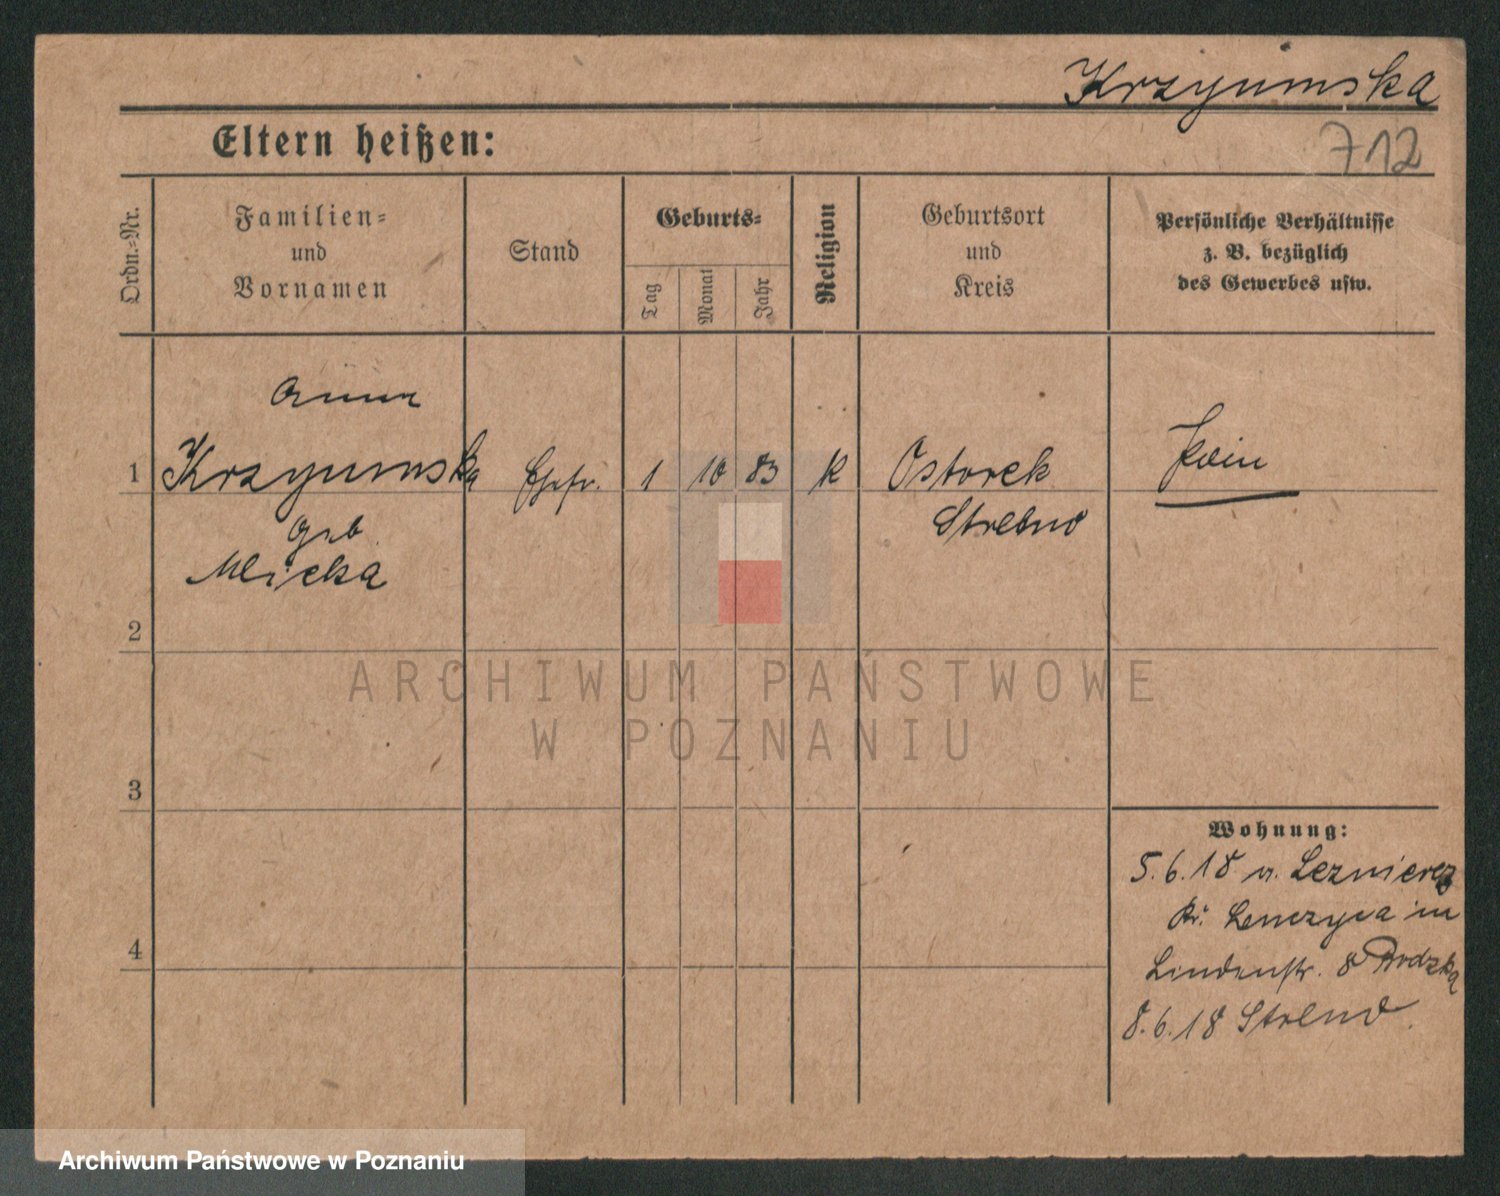 Krzyumska
712
Eltern heißen:
Ordn.=Nr.
Familien=
und
Vornamen
Stand
Geburts=
Tag
Monat
Jahr
Religion
Geburtsort
und
Kreis
Persönliche Verhältnisse
z. B. bezüglich
des Gewerbes usw.
Anna
1 Krzyumska Ehefr. 1 10 83 K Ostorek
geb Strelno
Mlicka
2
3
4
Wohnung:
5.6.18 v. Leznierez
Kr. Lenczyca in
Lindenstr. 8
8.6.18 Strelno
ARCHIWUM PAŃSTWOWE
W POZNANIU
Archiwum Państwowe w Poznaniu